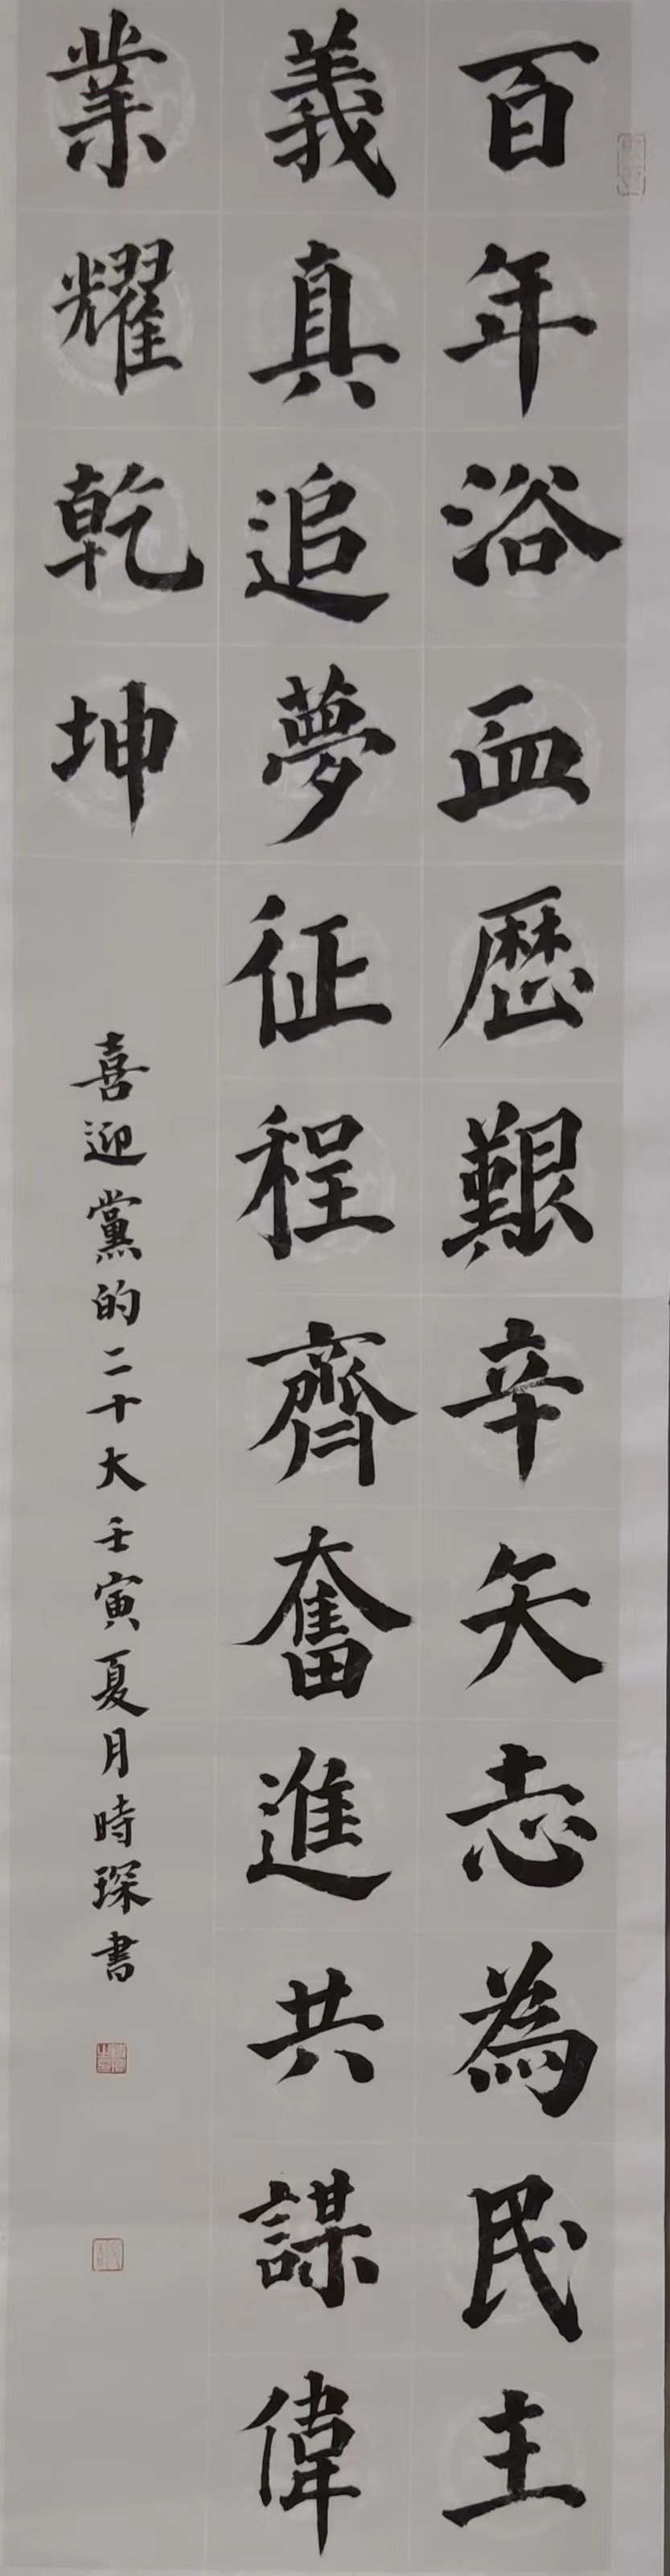 百年浴血歷艱辛矢志為民主
義真追夢征程齊奮進共謀偉
業耀乾坤
喜迎黨的二十大壬寅夏月時琛書